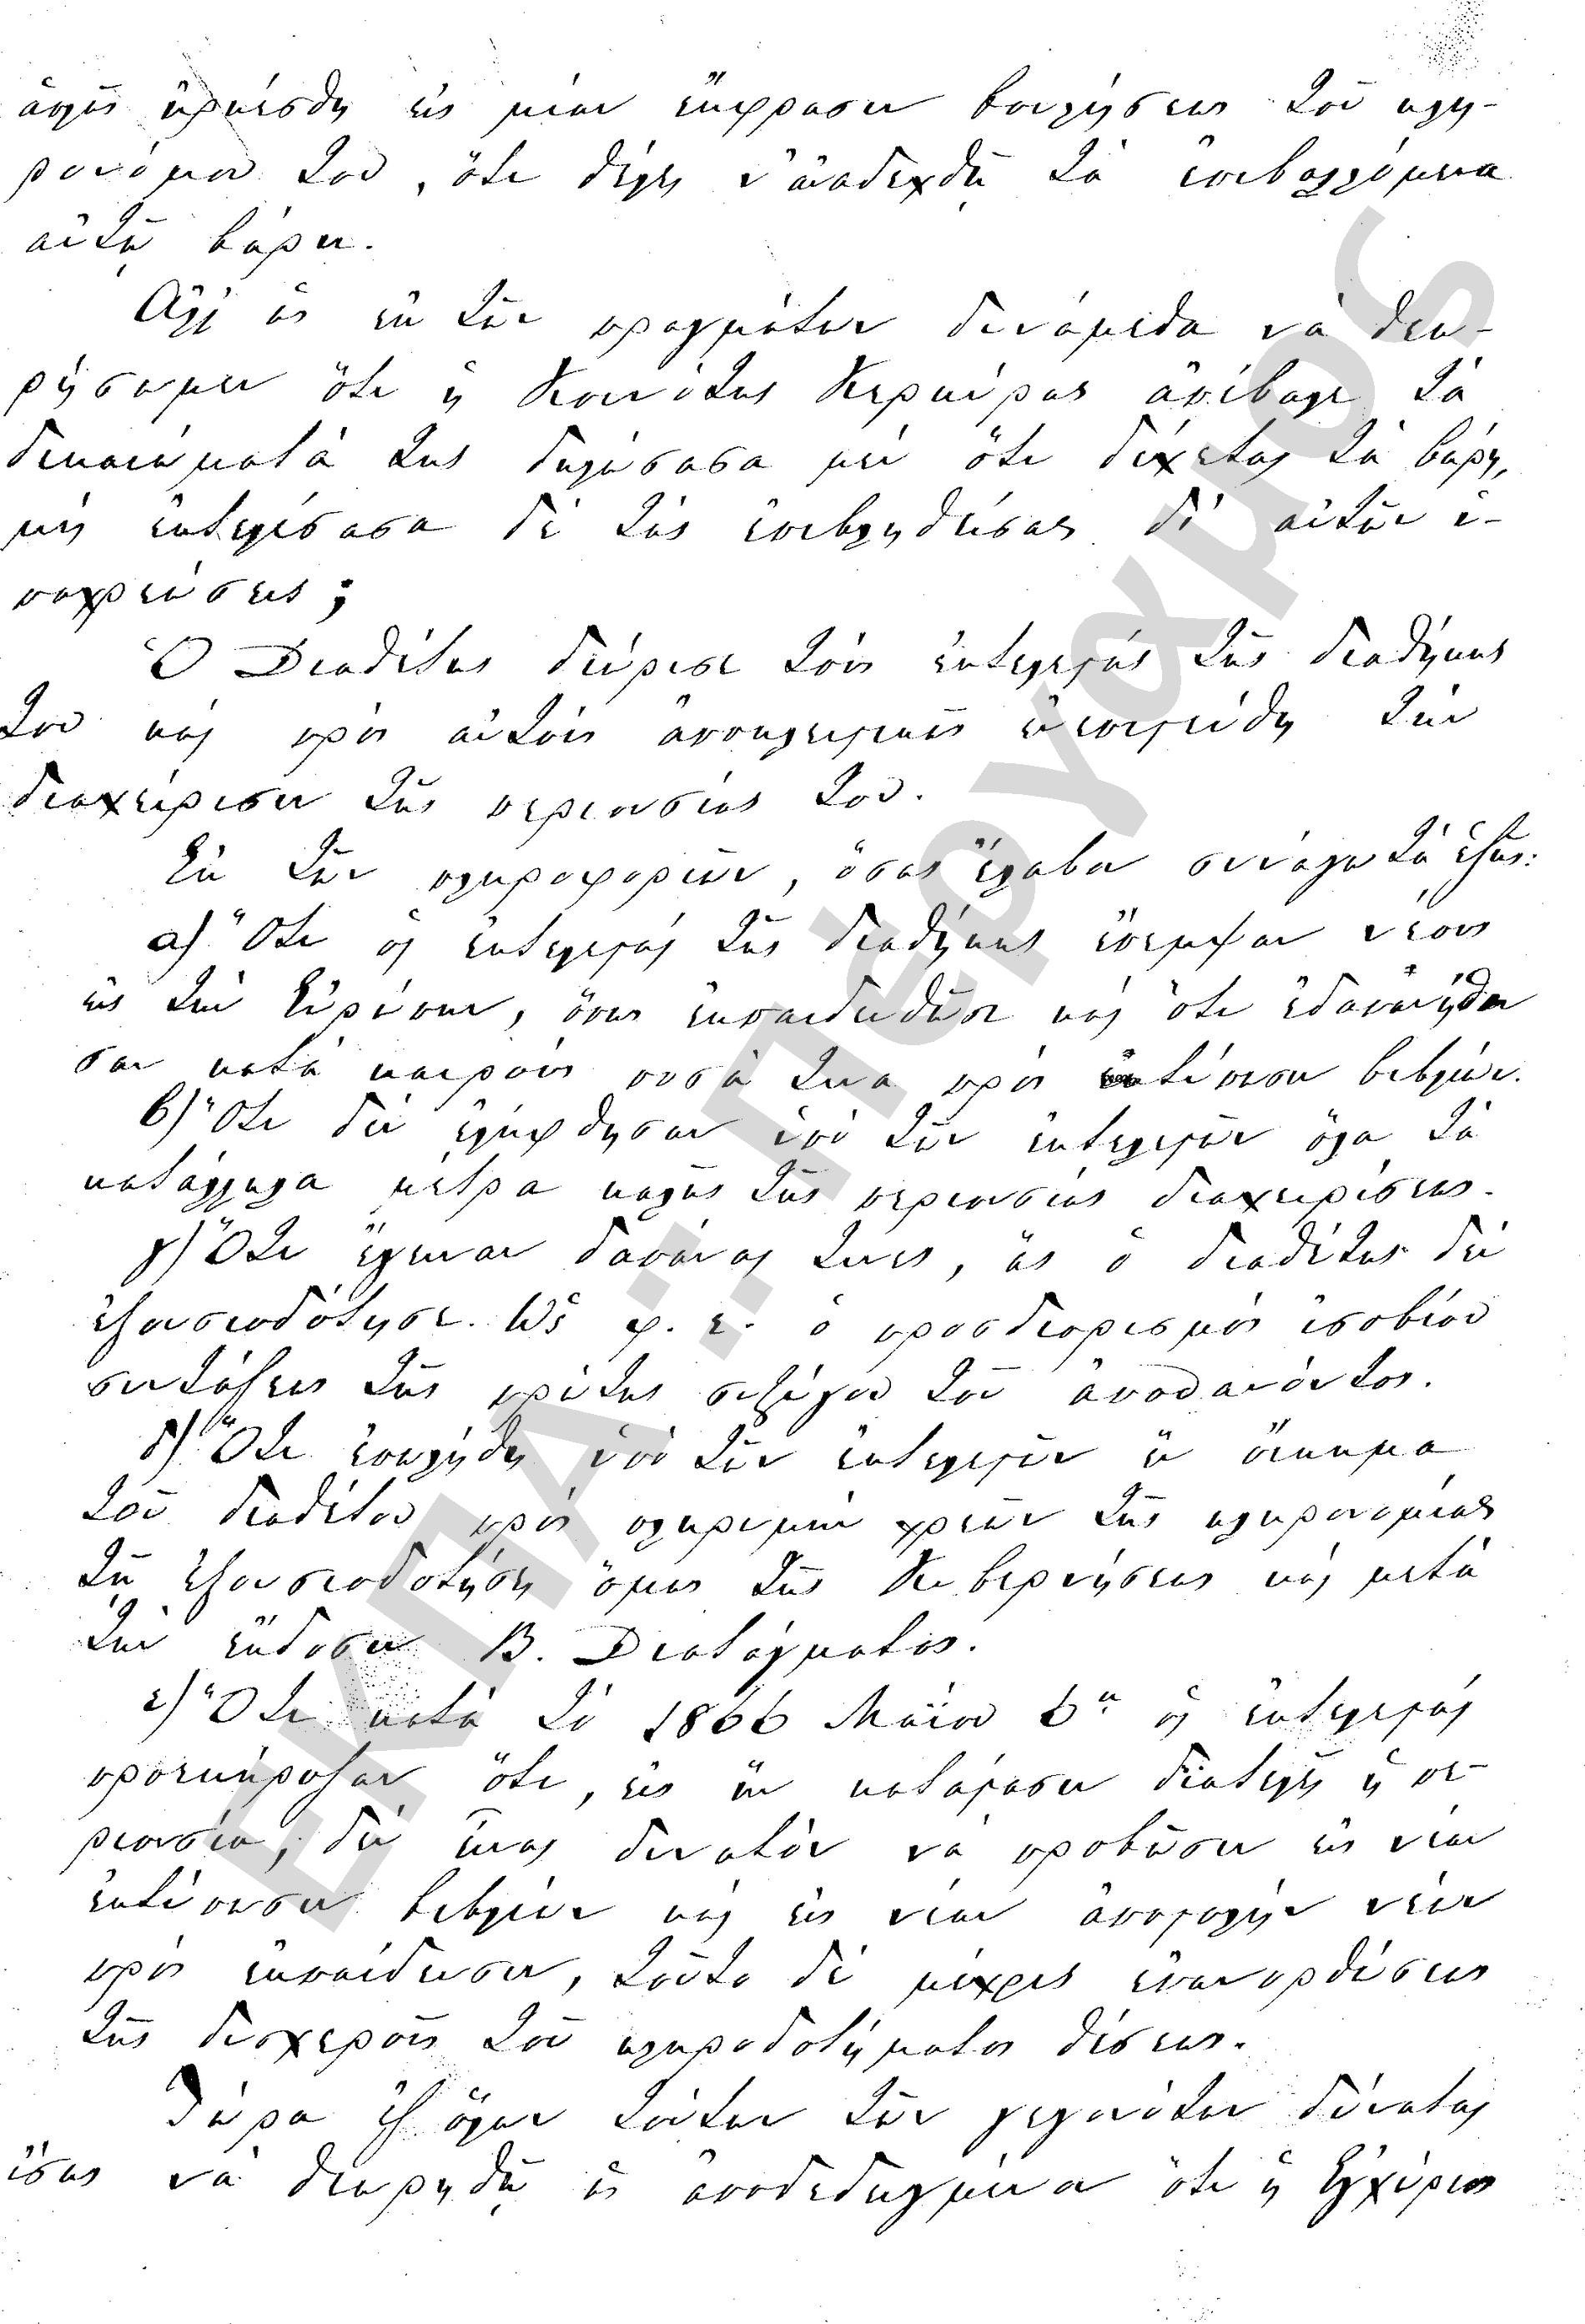 ἁπλῶς ἠρκέσθη εἰς μίαν ἔκφρασιν βουλήσεως τοῦ κλη-
ρονόμου του, ὅτι θέλει ν' ἀναδεχθῇ τὰ ἐπιβαλλόμενα
αὐτῷ βάρη.
Ἀλλ' ὡς ἐκ τῶν πραγμάτων δυνάμεθα νὰ θεω-
ρήσωμεν ὅτι ἡ Κοινότης Κερκύρας ἀπέβαλε τὰ
δικαιώματά της δηλώσασα μὲν ὅτι δέχεται τὰ βάρη,
μὴ ἐκτελέσασα δὲ τὰς ἐπιβληθείσας δι' αὐτῶν ὑ-
ποχρεώσεις;
Ὁ Διαθέτης διώρισε τοὺς ἐκτελεστὰς τῆς διαθήκης
του καὶ πρὸς αὐτοὺς ἀποκλειστικῶς ἐνεπιστεύθη τὴν
διαχείρισιν τῆς περιουσίας του.
Ἐκ τῶν πληροφοριῶν, ὅσας ἔλαβον συνάγω τὰ ἑξῆς:
α) Ὅτι οἱ ἐκτελεσταὶ τῆς διαθήκης ἔπεμψαν νέους
εἰς τὴν Εὐρώπην, ὅπως ἐκπαιδευθῶσι καὶ ὅτι ἐδαπανήθη
σαν κατὰ καιροὺς ποσά τινα πρὸς ἐκτύπωσιν βιβλίων.
β) Ὅτι δὲν ἐλήφθησαν ὑπὸ τῶν ἐκτελεστῶν ὅλα τὰ
κατάλληλα μέτρα καλῆς τῆς περιουσίας διαχειρίσεως.
γ) Ὅτι ἔγειναν δαπάναι τινες, ἃς ὁ διαθέτης δὲν
ἐξουσιοδότησε. Ὡς φ. ε. ὁ προσδιορισμὸς ἰσοβίου
συντάξεως τῆς πρώτης συζύγου τοῦ ἀποθανόντος.
δ) Ὅτι ἐπωλήθη ὑπὸ τῶν ἐκτελεστῶν ἓν οἴκημα
τοῦ διαθέτου πρὸς πληρωμὴν χρεῶν τῆς κληρονομίας
τῇ ἐξουσιοδοτήσει ὅμως τῆς Κυβερνήσεως καὶ μετὰ
τὴν ἔκδοσιν Β. Διατάγματος.
ε) Ὅτι κατὰ τὸ 1866 Μαΐου 6η οἱ ἐκτελεσταὶ
προεκήρυξαν ὅτι, εἰς ἣν κατάστασιν διατελεῖ ἡ πε-
ριουσία, δὲν εἶναι δυνατὸν νὰ προβῶσιν εἰς νέαν
ἐκτύπωσιν βιβλίων καὶ εἰς νέαν ἀποστολὴν νέων
πρὸς ἐκπαίδευσιν, τοῦτο δὲ μέχρις ἐπανορθώσεως
τῆς δυσχεροῦς τοῦ κληροδοτήματος θέσεως.
Τώρα ἐξ ὅλων τούτων τῶν γεγονότων δύναται
ἴσως νὰ θεωρηθῇ ὡς ἀποδεδειγμένον ὅτι ἡ Ἐγχώριος
ΕΚΠΑ :: Πέργαμος